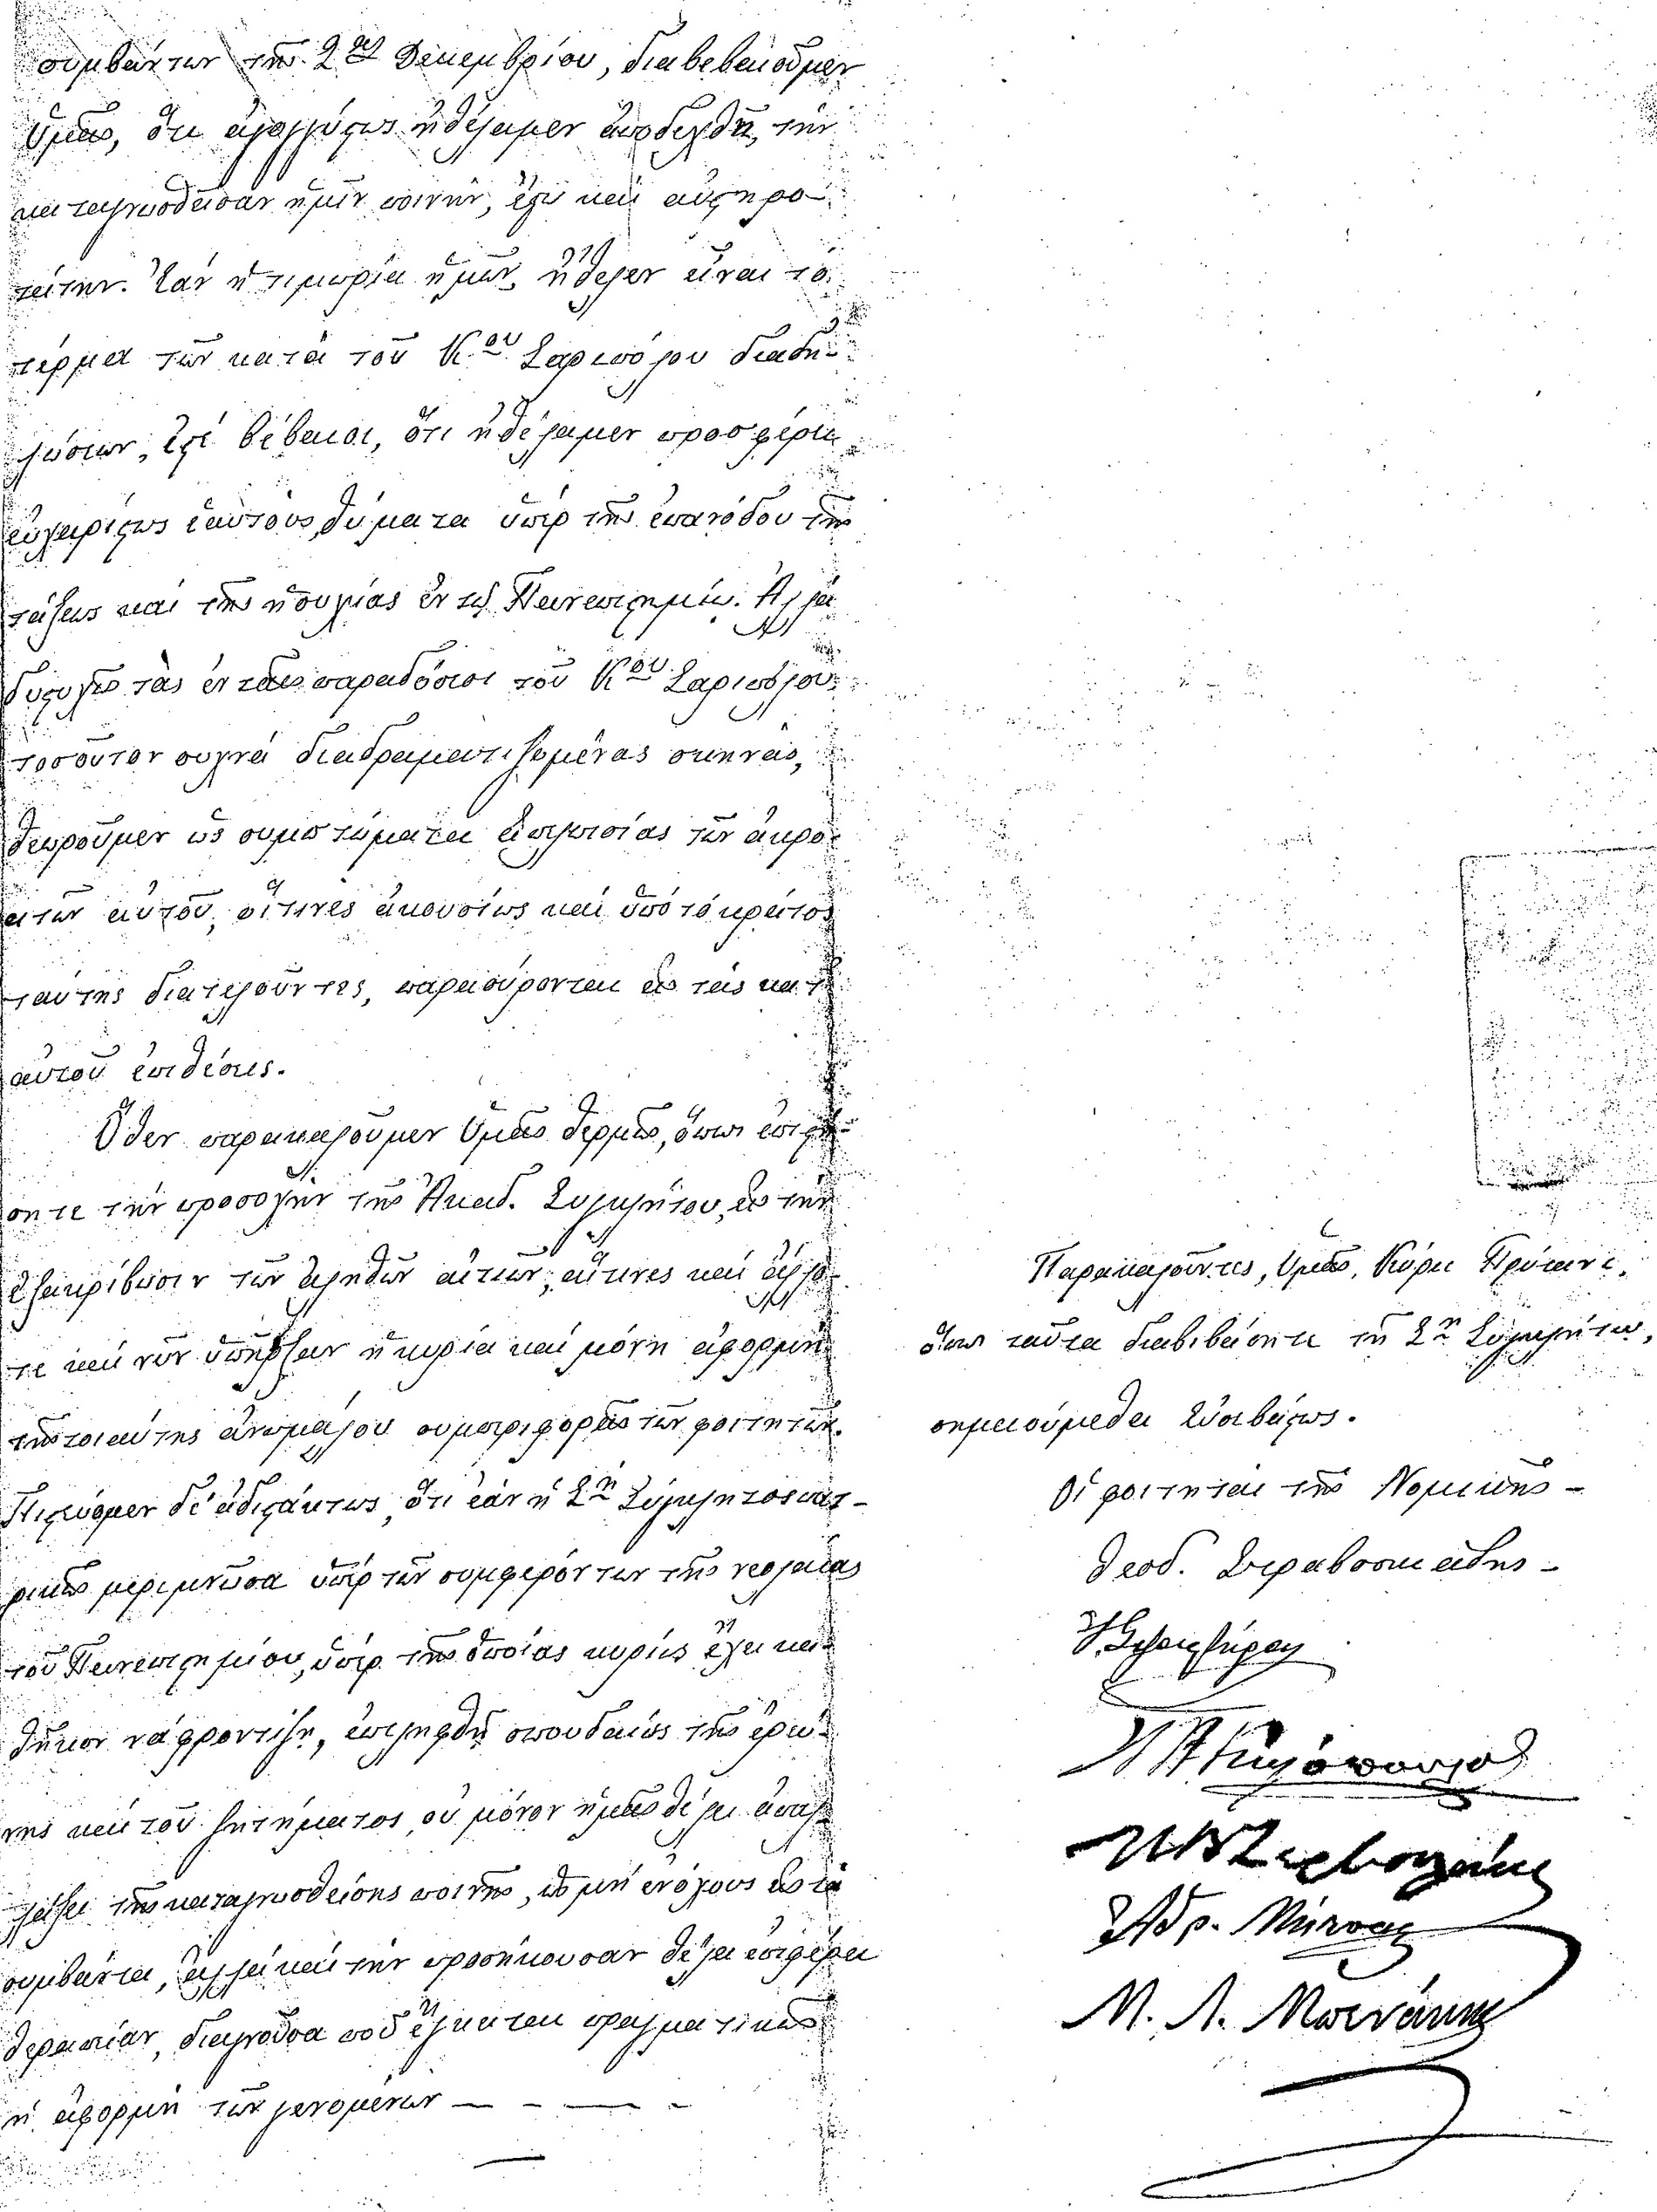 συμβάντων τῆς 2ας Δεκεμβρίου, διαβεβαιοῦμεν
Ὑμᾶς, ὅτι ἀγογγύστως ἠθέλαμεν ἀποδεχθῆ, τὴν
καταγνωσθεῖσαν ἡμῖν ποινήν, ἔτι καὶ αὐστηρο-
τάτην. Ἐὰν ἡ τιμωρία ἡμῶν ἤθελεν εἶναι τὸ
τέρμα τῶν κατὰ τοῦ Κου Σαριπόλου διαδη-
λώσεων, ἐστὲ βέβαιοι, ὅτι ἠθέλαμεν προσφέρει
εὐχαρίστως ἑαυτοὺς θύματα ὑπὲρ τῆς ἐπανόδου τῆς
τάξεως καὶ τῆς ἡσυχίας ἐν τῷ Πανεπιστημίῳ. Ἀλλὰ
δυστυχῶς τὰς ἐν ταῖς παραδόσεσι τοῦ Κου Σαριπόλου
τοσοῦτον συχνὰ διαδραματιζομένας σκηνάς,
θεωροῦμεν ὡς συμπτώματα ἀπελπισίας τῶν ἀκρο-
ατῶν αὐτοῦ, οἵτινες ἀκουσίως καὶ ὑπὸ τὸ κράτος
ταύτης διατελοῦντες, παρασύρονται εἰς τὰς κατ'
αὐτοῦ ἐπιθέσεις.
Ὅθεν παρακαλοῦμεν Ὑμᾶς θερμῶς, ὅπως ἐπιστή-
σητε τὴν προσοχὴν τῆς Ἀκαδ. Συγκλήτου, εἰς τὴν
ἐξακρίβωσιν τῶν ἀληθῶν αἰτιῶν, αἵτινες καὶ ἄλλο-
τε καὶ νῦν ὑπῆρξαν ἡ κυρία καὶ μόνη ἀφορμὴ
τῆς τοιαύτης ἀνωμάλου συμπεριφορᾶς τῶν φοιτητῶν.
Πιστεύομεν δὲ ἀδιστάκτως, ὅτι ἐὰν ἡ Σὴ Σύγκλητος πατ-
ρικῶς μεριμνῶσα ὑπὲρ τῶν συμφερόντων τῆς νεολαίας
τοῦ Πανεπιστημίου, ὑπὲρ τῆς ὁποίας κυρίως ἔχει κα-
θῆκον νὰ φροντίζῃ, ἐπιληφθῇ σπουδαίως τῆς ἐρεύ-
νης καὶ τοῦ ζητήματος, οὐ μόνον ἡμᾶς θέλει ἀπαλ-
λάξει τῆς καταγνωσθείσης ποινῆς, ὡς μὴ ἐνόχους εἰς τὰ
συμβάντα, ἀλλὰ καὶ τὴν προσήκουσαν θέλει ἐπιφέρει
θεραπείαν, διαγνοῦσα ποῦ ἔγκειται πραγματικῶς
ἡ ἀφορμὴ τῶν γενομένων — - — -
Παρακαλοῦντες, Ὑμᾶς, Κύριε Πρύτανι,
ὅπως ταῦτα διαβιβάσητε τῇ Σῇ Συγκλήτῳ,
σημειούμεθα Εὐσεβάστως.
Οἱ φοιτηταὶ τῆς Νομικῆς -
Θεοδ.
Ἀδρ.
Μ. Λ.